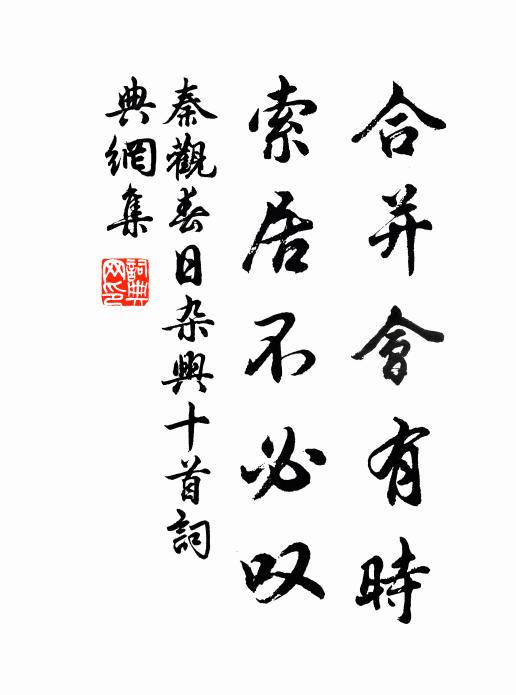 合并會有時
索居不必叹
秦觀春日杂興十首詞
典網集
詞典网印